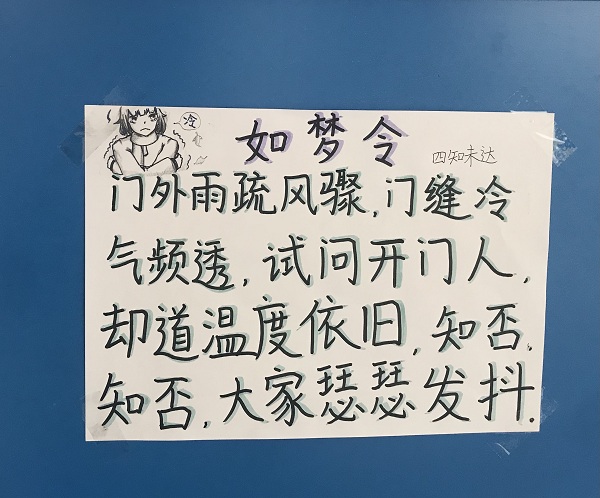 冷
如梦令
四知未达
门外雨疏风骤,门缝冷
气频透,试问开门人,
却道温度依旧,知否,
知否,大家瑟瑟发抖.